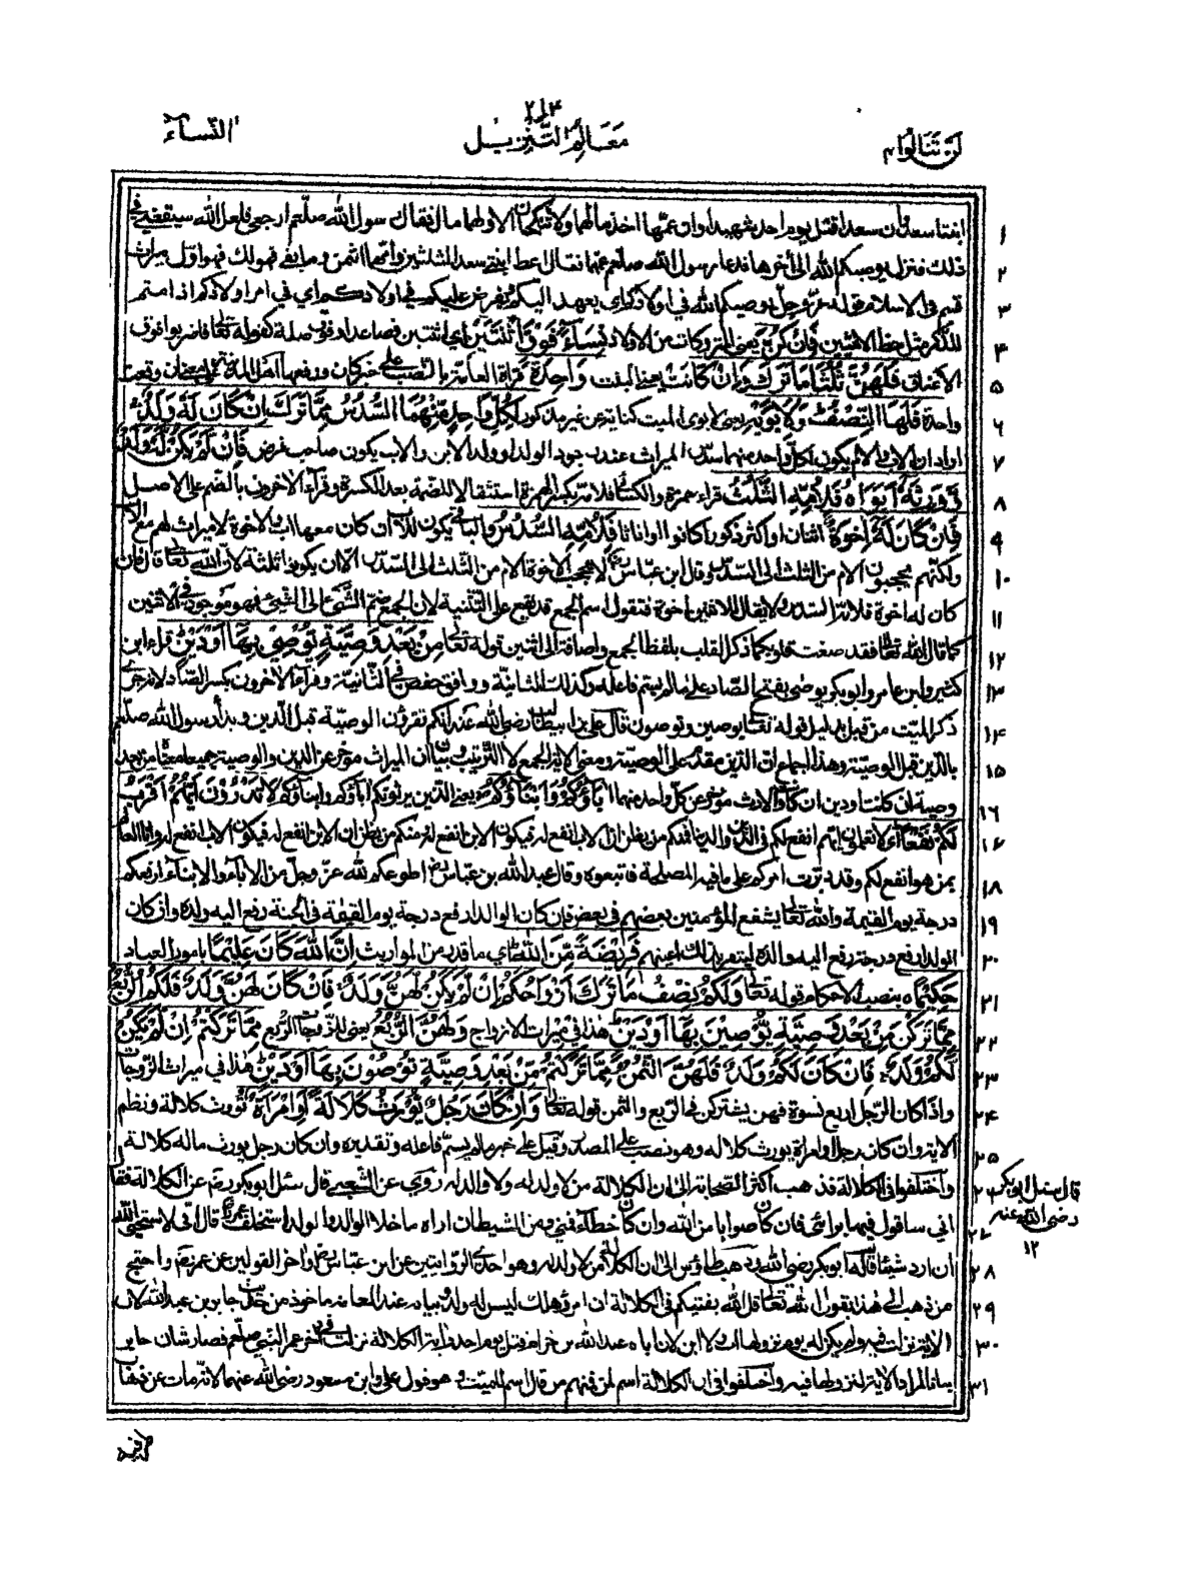 ٢١٣
لن تنالوا ٤ معالم التنزيل النساء
١ ابنتا سعد وان سعدا قتل يوم احد شهيدا وان عمهما اخذ مالهما ولا تنكحان الا ولهما مال فقال رسول الله صلعم ارجعي فلعل الله سيقضي في
٢ ذلك فنزل يوصيكم الله الى أخرها فدعا رسول الله صلعم عمهما فقال اعط ابنتي سعد الثلثين وامهما الثمن وما بقي فهو لك فهو اول ميراث
٣ قسم في الاسلام قوله عز وجل يوصيكم الله في اولادكم اي يعهد اليكم ويفرض عليكم في اولادكم اي في امر اولادكم اذا متم
٤ للذكر مثل حظ الانثيين فَاِنْ كُنَّ يعني المتروكات من الاولاد نِسَآءً فَوْقَ اثْنَتَيْنِ اي اثنتين فصاعدا وفوق صلة كقوله تعالى فاضربوا فوق
٥ الاعناق فَلَهُنَّ ثُلُثَا مَا تَرَكَ وَاِنْ كَانَتْ يعني البنت وَاحِدَةً قراءة العامة بالنصب على خبر كان ورفعها اهل المدينة على معنى ان وقعت
٦ واحدة فَلَهَا النِّصْفُ وَلِاَبَوَيْهِ يعني لابوي الميت كناية عن غير مذكور لِكُلِّ وَاحِدٍ مِّنْهُمَا السُّدُسُ مِمَّا تَرَكَ اِنْ كَانَ لَهُ وَلَدٌ
٧ اراد ان الاب والام يكون لكل واحد منهما سدس الميراث عند وجود الولد او ولد الابن والاب يكون صاحب فرض فَاِنْ لَّمْ يَكُنْ لَّهُ وَلَدٌ
٨ وَّوَرِثَهُ اَبَوَاهُ فَلِاُمِّهِ الثُّلُثُ قراء حمزة والكسائي فلامه بكسر الهمزة استثقالا للضمة بعد الكسرة وقرأ الآخرون بالضم على الاصل
٩ فَاِنْ كَانَ لَهُ اِخْوَةٌ اثنان او اكثر ذكورا كانوا او اناثا فَلِاُمِّهِ السُّدُسُ والباقي يكون للاب ان كان معها اب والاخوة لا ميراث لهم مع الاب
١٠ ولكنهم يحجبون الام من الثلث الى السدس وقال ابن عباس لا يحجب الاخوة الام من الثلث الى السدس الا ان يكونوا ثلثة لان الله تعالى قال فان
١١ كان له اخوة فلامه السدس ولا يقال للاثنين اخوة فنقول اسم الجمع قد يقع على التثنية لان الجمع ضم الشيء الى الشيء فهو موجود في الاثنين
١٢ كما قال الله تعالى فقد صغت قلوبكما ذكر القلب بلفظ الجمع واضافه الى الاثنين قوله تعالى مِنْ بَعْدِ وَصِيَّةٍ يُّوْصِيْ بِهَا اَوْ دَيْنٍ قراء ابن
١٣ كثير وابن عامر وابو بكر يوصى بفتح الصاد على ما لم يسم فاعله وكذلك الثانية ووافق حفص في الثانية وقرأ الآخرون بكسر الصاد لانه جرى
١٤ ذكر الميت من قبل بدليل قوله تعالى يوصين وتوصون قال علي بن ابي طالب رضي الله عنه انكم تقرؤن الوصية قبل الدين وبدأ رسول الله صلعم
١٥ بالدين قبل الوصية وهذا اجماع ان الدين مقدم على الوصية ومعنى الاية الجمع لا الترتيب وبيان ان الميراث مؤخر عن الدين والوصية جميعا معناه من بعد
١٦ وصية ان كانت او دين ان كان فالارث مؤخر عن كل واحد منهما اٰبَآؤُكُمْ وَاَبْنَآؤُكُمْ يعني الذين يرثونكم اباؤكم وابناؤكم لَا تَدْرُوْنَ اَيُّهُمْ اَقْرَبُ
١٧ لَكُمْ نَفْعًا اي لا تعلمون ايهم انفع لكم في الدين والدنيا فمنكم من يظن ان الاب انفع له فيكون الابن انفع له ومنكم من يظن ان الابن انفع له فيكون الاب انفع له وانا العالم
١٨ بمن هو انفع لكم وقد دبرت امركم على ما فيه المصلحة فاتبعوه وقال عبد الله بن عباس اطوعكم لله عز وجل من الاباء والابناء ارفعكم
١٩ درجة يوم القيمة والله تعالى يشفع المؤمنين بعضهم في بعض فان كان الوالد ارفع درجة يوم القيمة في الجنة رفع اليه ولده وان كان
٢٠ الولد ارفع درجة رفع اليه والده لتقر بذلك اعينهم فَرِيْضَةً مِّنَ اللّٰهِ اي ما قدر من المواريث اِنَّ اللّٰهَ كَانَ عَلِيْمًا بامور العباد
٢١ حَكِيْمًا بنصب الاحكام قوله تعالى وَلَكُمْ نِصْفُ مَا تَرَكَ اَزْوَاجُكُمْ اِنْ لَّمْ يَكُنْ لَّهُنَّ وَلَدٌ فَاِنْ كَانَ لَهُنَّ وَلَدٌ فَلَكُمُ الرُّبُعُ
٢٢ مِمَّا تَرَكْنَ مِنْ بَعْدِ وَصِيَّةٍ يُّوْصِيْنَ بِهَا اَوْ دَيْنٍ هذا في ميراث الازواج وَلَهُنَّ الرُّبُعُ يعني للزوجات الربع مِمَّا تَرَكْتُمْ اِنْ لَّمْ يَكُنْ
٢٣ لَّكُمْ وَلَدٌ فَاِنْ كَانَ لَكُمْ وَلَدٌ فَلَهُنَّ الثُّمُنُ مِمَّا تَرَكْتُمْ مِّنْ بَعْدِ وَصِيَّةٍ تُوْصُوْنَ بِهَا اَوْ دَيْنٍ هذا في ميراث الزوجات
٢٤ واذا كان للرجل اربع نسوة فهن يشتركن في الربع والثمن قوله تعالى وَاِنْ كَانَ رَجُلٌ يُّوْرَثُ كَلَالَةً اَوِ امْرَاَةٌ تورث كلالة ونظم
٢٥ الاية وان كان رجل او امراة يورث كلاله وهو نصب على المصدر وقيل على خبر ما لم يسم فاعله وتقديره وان كان رجل يورث ماله كلالة
٢٦ واختلفوا في الكلالة فذهب اكثر الصحابة الى ان الكلالة من لا ولد له ولا والد له روي عن الشعبي قال سئل ابو بكر رضى عن الكلالة فقال
٢٧ اني ساقول فيها برائي فان كان صوابا من الله وان كان خطأ فمني ومن الشيطان اراه ما خلا الوالد والولد فلما استخلف عمر قال اني لاستحيي الله
٢٨ ان ارد شيئا قاله ابو بكر رضي الله وذهب طاؤس الى ان الكلالة من لا ولد له وهو احدى الروايتين عن ابن عباس واخر القولين عن عمر رضى واحتج
٢٩ من ذهب الى هذا بقول الله تعالى قل الله يفتيكم في الكلالة ان امرؤ هلك ليس له ولد وبيانه عند العامة ماخوذ من حديث جابر بن عبد الله لان
٣٠ الاية نزلت فيه ولم يكن له يوم نزولها اب ولا ابن لان اباه عبد الله بن حرام قتل يوم احد واية الكلالة نزلت في اخر عمر النبي صلعم فصار شان جابر
٣١ بيانا لمراد الاية لنزولها فيه واختلفوا في ان الكلالة اسم لمن فمنهم من قال اسم للميت وهو قول علي وابن مسعود رضي الله عنهما لانه مات عن ذهاب
قال سئل ابو بكر
رضى الله عنه
١٢